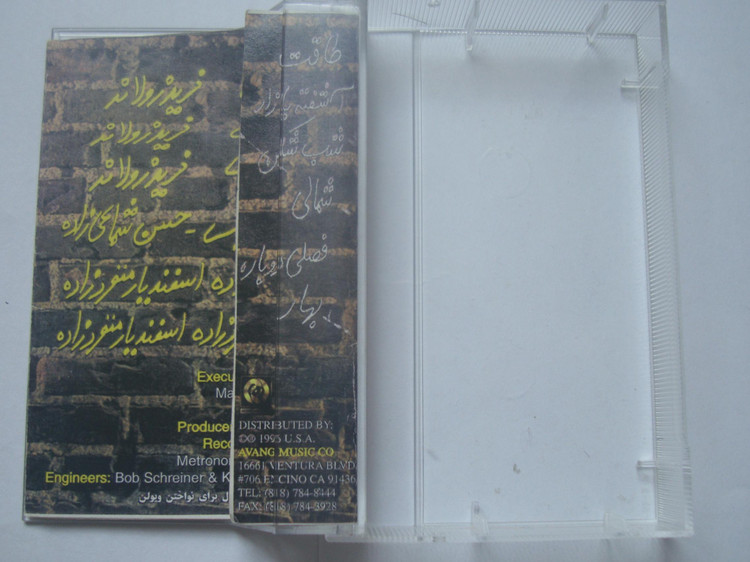 فرید زولاند
فرید زولاند
فرید زولاند
حسن شماعی زاده
اسفندیار منفردزاده
اسفندیار منفردزاده
Execu
Ma
Producer
Reco
Metrono
Engineers: Bob Schreiner & K
ل برای نواختن ویولن
طاقت
شب شکن
شمالی
فصلی دوباره
بهار
DISTRIBUTED BY:
©℗ 1995 U.S.A.
AVANG MUSIC CO
16661 VENTURA BLVD
#706 ENCINO CA 91436
TEL: (818) 784-8444
FAX: (818) 784-3928